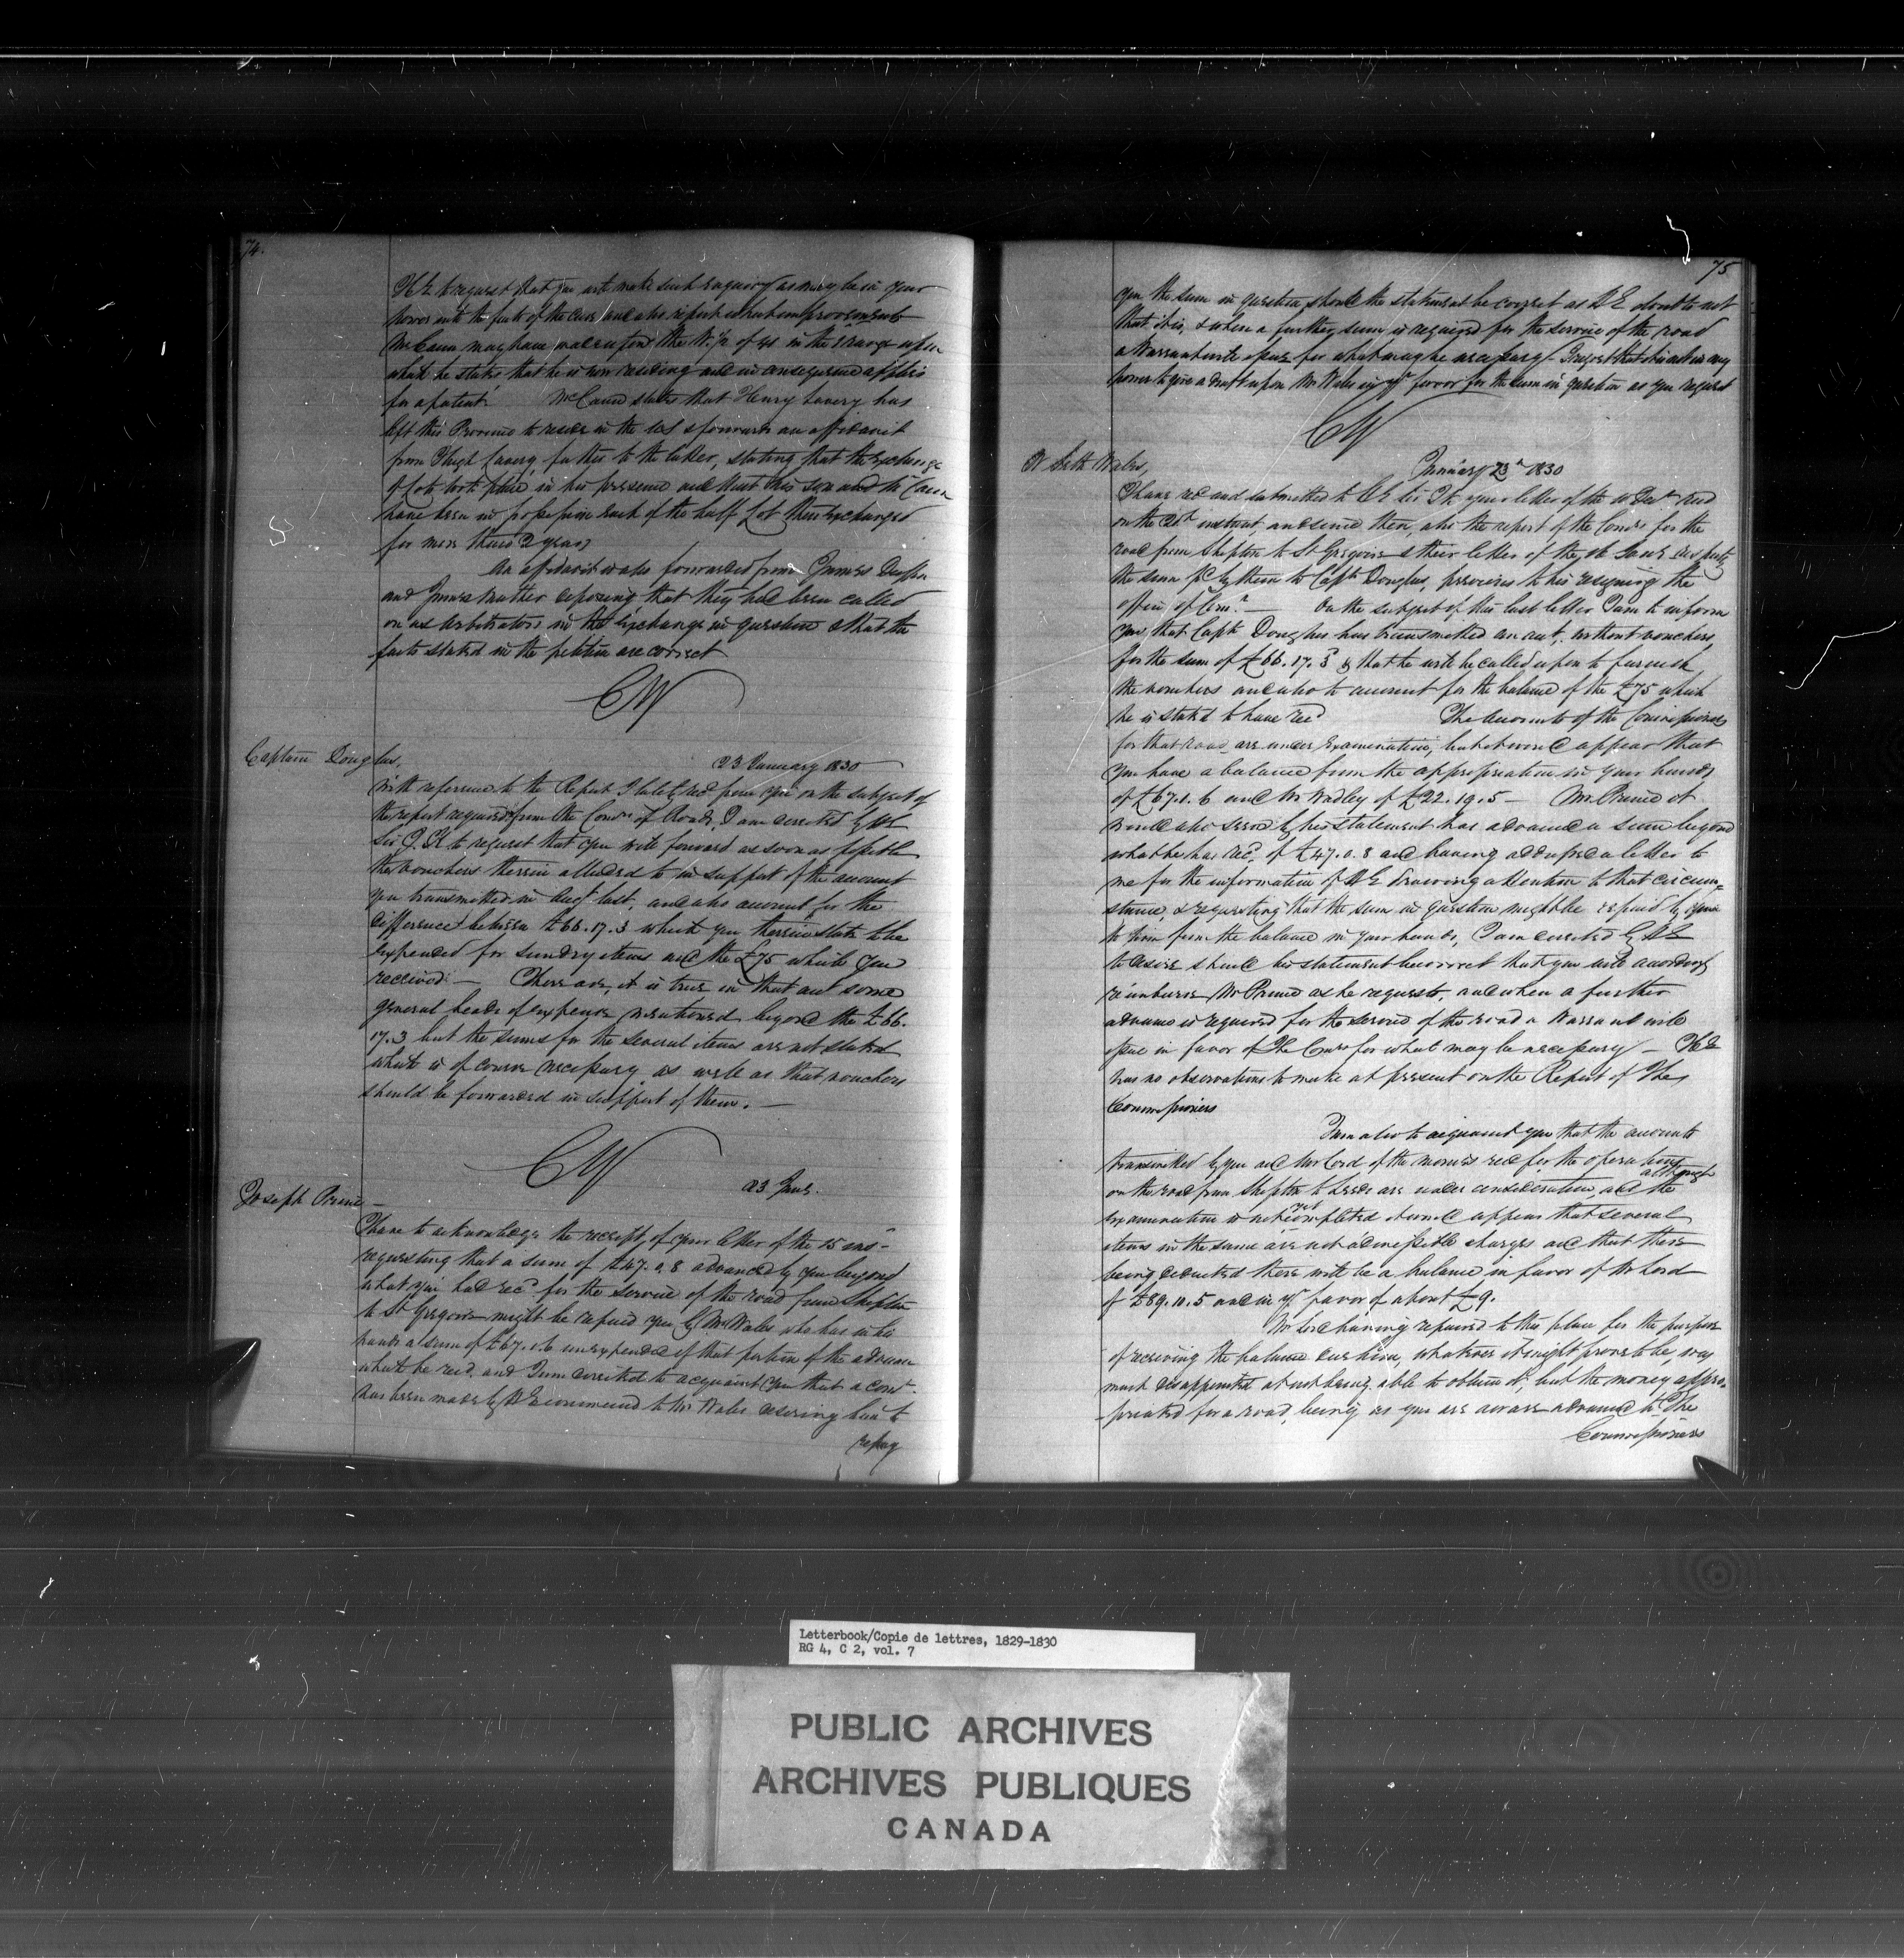 74.
H E to request that you will make such enquiry as may be in your
power into the facts of the case and also report what improvements
McCann may have made upon the W. 1/2 of 28 in the 5 range upon
which he states that he is now residing and in consequence applies
for a patent. McCann states that Henry Lavery has
left this Province to reside in the US & forwards an affidavit
from Hugh Lavery, father to the latter, stating that the exchange
of Lots took place in his presence and that his son and McCann
have been in possession each of the half Lot thus exchanged
for more than 2 years
An affidavit is also forwarded from James
and James deposing that they had been called
on as Arbitrators in the Exchange in question & that the
facts stated in the petition are correct
CY
Captain Douglas,
23 January 1830
With reference to the Report I lately recd from you on the subject of
the report required from the Comrs of Roads, I am directed by HE
Sir J. K to request that you will forward as soon as possible
the vouchers therein alluded to in support of the account
you transmitted in Augt last, and also account for the
difference between £66.17.3 which you therein state to be
expended for sundry items and the £75 which you
received. — There are, it is true in that act some
general heads of expence mentioned beyond the £66.
17.3 but the sums for the several items are not stated
which is of course necessary as well as that vouchers
should be forwarded in support of them. —
CY
Joseph Prince —
23 Jany.
I have to acknowledge the receipt of your letter of the 15 inst -
requesting that a sum of £47.0.8 advanced by you beyond
what you had recd for the service of the road from Shipton
to St Gregoire might be repaid you by Mr Wales who has in his
hands a sum of £67.1.6 unexpended of that portion of the advance
which he recd. and I am directed to acquaint you that a comn
has been made by HE command to Mr Wales desiring him to
repay
75
you the sum in question should the statement be correct as HE doubts not
that it is, & when a further sum is required for the service of the road
a Warrant will issue for what may be necessary. I regret that it is not in my
power to give a draft upon Mr Wales in yr favor for the sum in question as you request
CY
W Seth Wales,
January 23d 1830
I have recd and submitted to HE Sir J K your letter of the 10 Decr recd
on the 20th instant, and since then, also the report of the Comrs for the
road from Shipton to St Gregoire & their letter of the
the sum pd by them to Captn Douglas, previous to his resigning the
office of Comr. — On the subject of this last letter I am to inform
you, that Captn Douglas has transmitted an act, without vouchers,
for the sum of £66.17.3 & that he will be called upon to furnish
the vouchers and also to account for the balance of the £75 which
he is stated to have recd The Accounts of the Commissioners
for that road are under Examination, but it would appear that
you have a balance from the appropriation in your hands
of £67.1.6 and Mr Wadley of £22.19.5 — Mr Prince it
would also seem by his statement has advanced a sum beyond
what he has recd. of £47.0.8 and having addressed a letter to
me for the information of HE drawing attention to that circum=
stance, & requesting that the sum in question might be repaid by you
to him from the balance in your hands, I am directed by HE
to desire should his statement be correct that you will accordingly
reimburse Mr Prince as he requests, and when a further
advance is required for the service of the road a Warrant will
issue in favor of The Comrs for what may be necessary — HE
has no observations to make at present on the Report of The
Commissioners
I am also to acquaint you that the accounts
transmitted by you and Mr Lord of the monies recd for the operations
on the road from Shipton to Leeds are under consideration, and although the
examination is not yet completed it would appear that several
items in the same are not admissible charges and that these
being deducted there will be a balance in favor of Mr Lord
of £89.10.5 and in yr favor of about £9.
Mr Lord having repaired to this place for the purpose
of receiving the balance due him, whatever it might prove to be, was
much disappointed at not being able to obtain it, but the money appro-
-priated for a road, being as you are aware advanced to The
Commissioners
Letterbook/Copie de lettres, 1829-1830
RG 4, C 2, vol. 7
PUBLIC ARCHIVES
ARCHIVES PUBLIQUES
CANADA